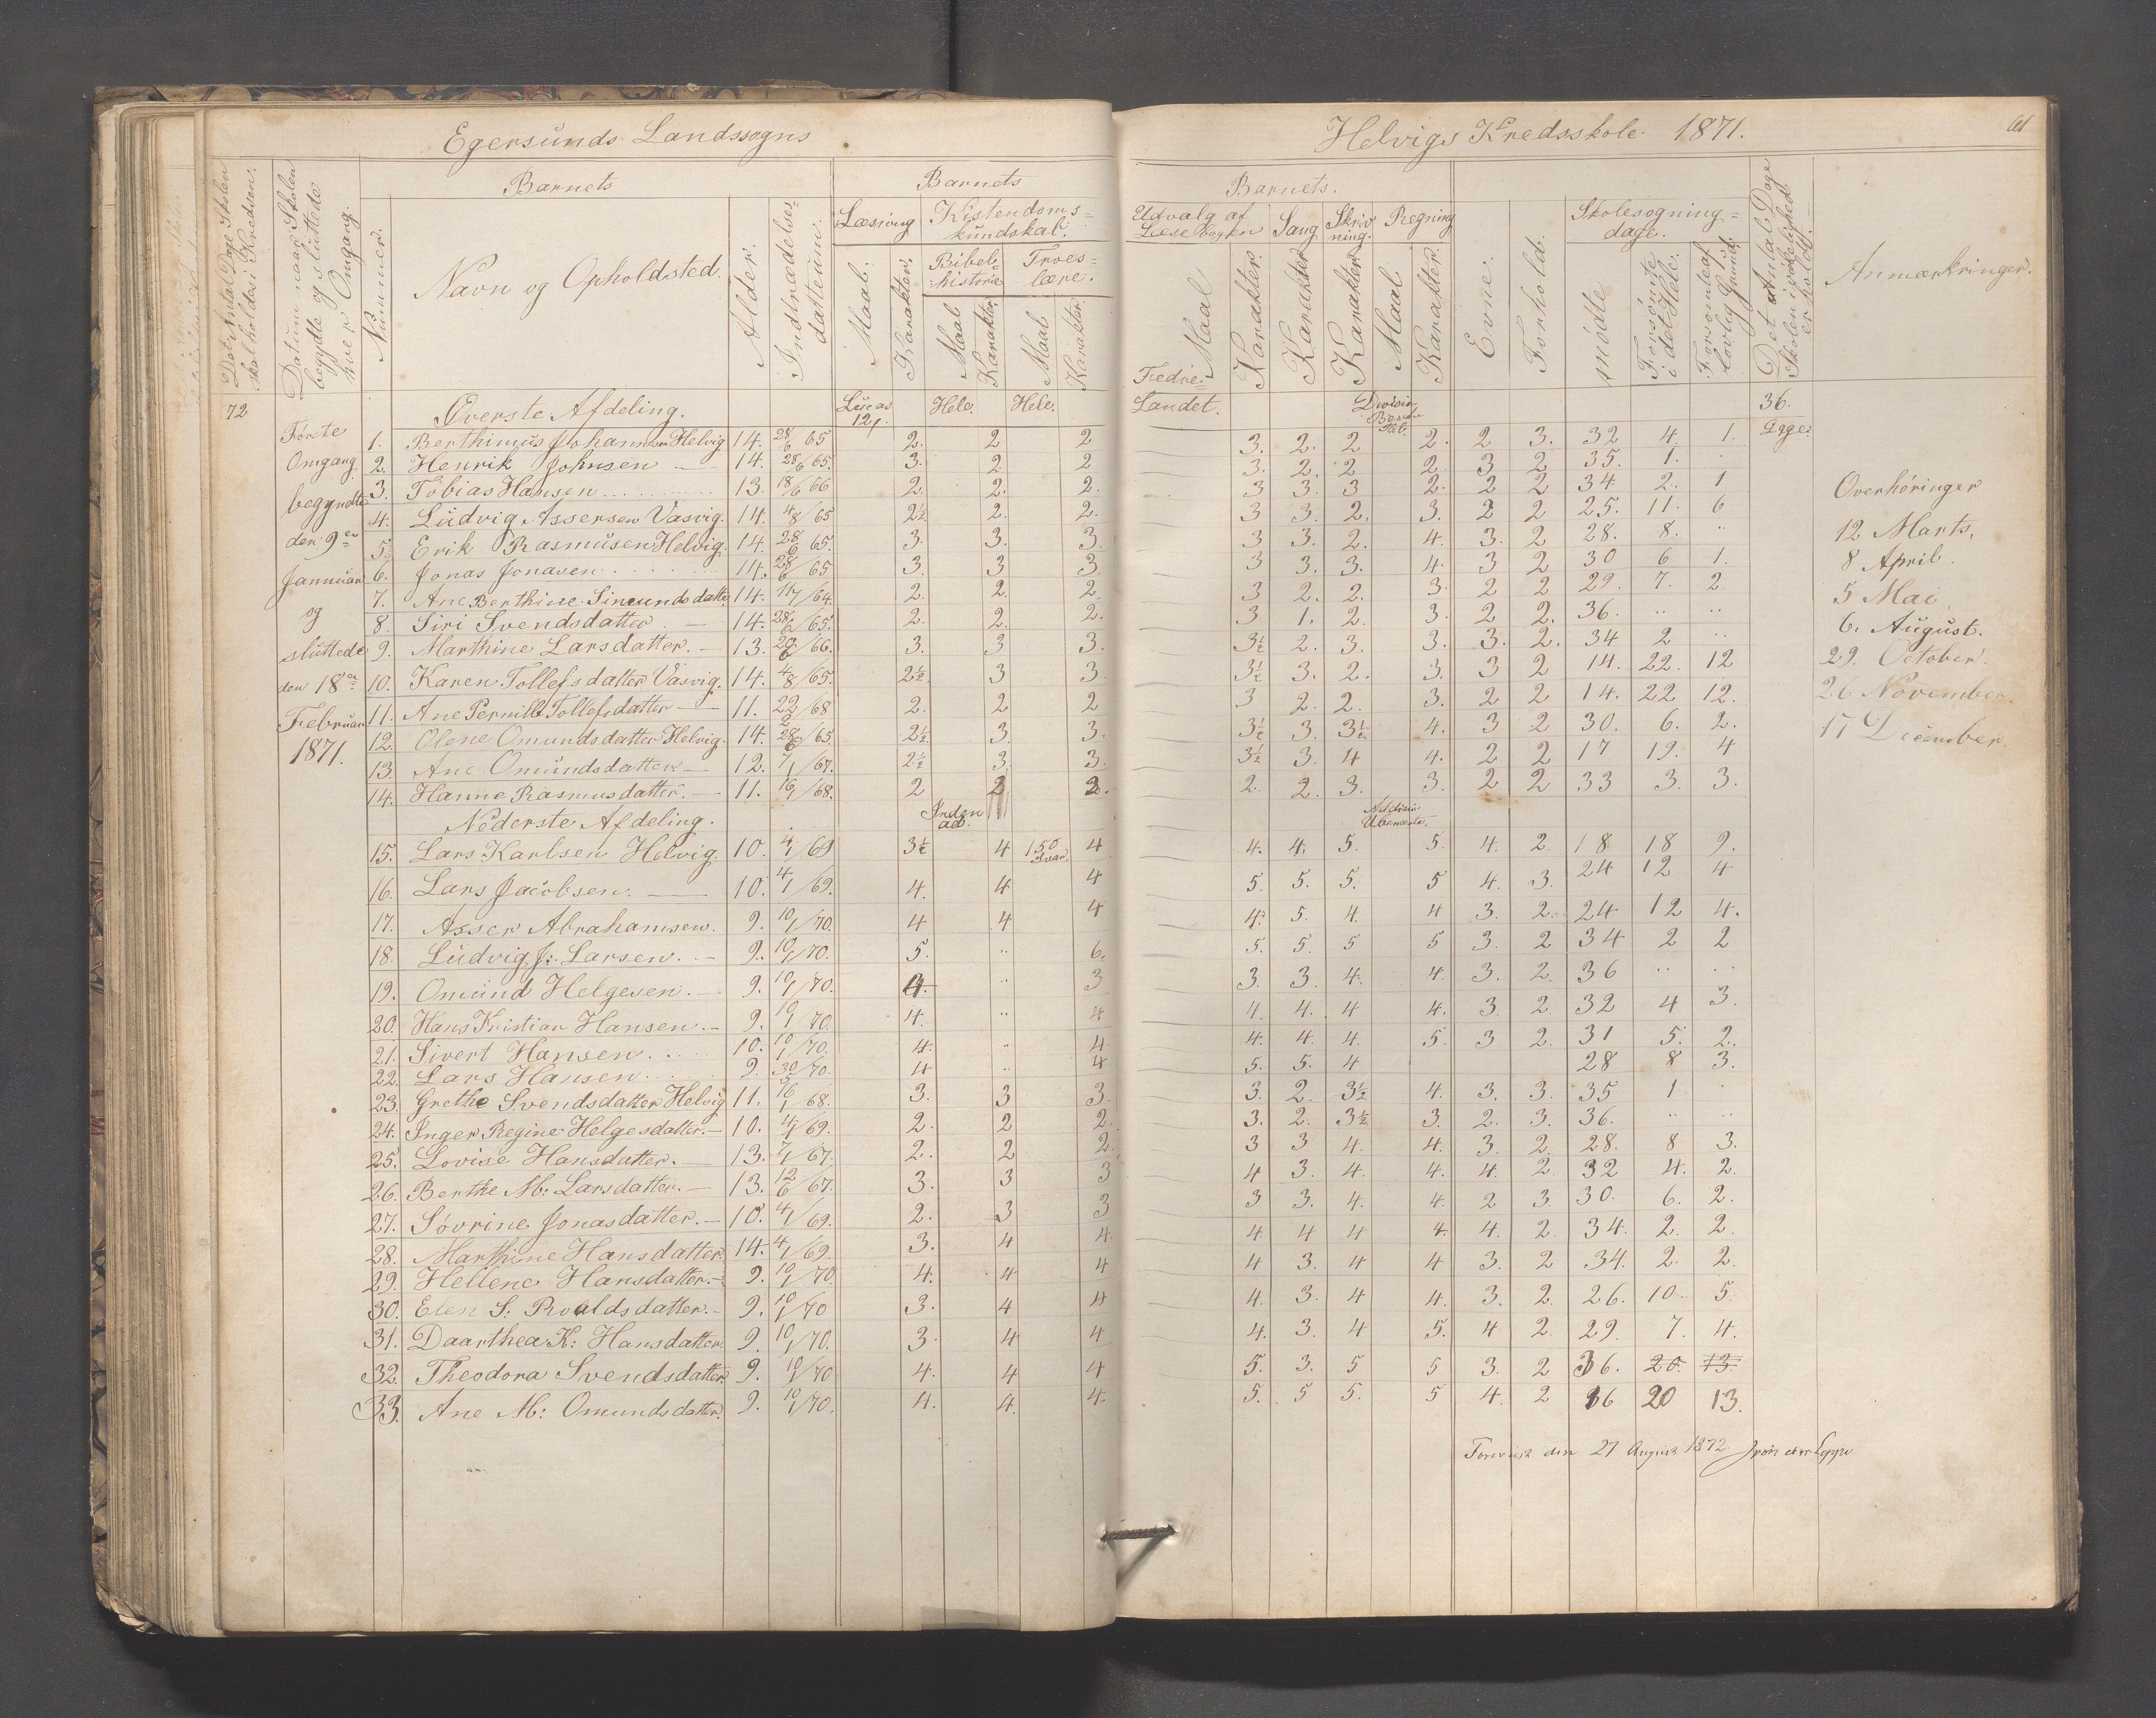 Egersunds Landssogns
Helvigs Kredsskole 1871.
61
Det Antal Dage Skolen skal holdes i Kredsen.
Datum naar Skolen begyndte og sluttede hver Omgang.
Barnets
Barnets
Barnets.
Nummer.
Navn og Opholdsted.
Alder.
Indtrædelses=datum.
Læsning
Maal.
Karakter.
Kistendoms=kundskab.
Bibel=historie
Maal
Karakter
Troes=lære.
Maal
Karakter.
Udvalg af Læsebogen
Maal
Karakter.
Sang
Karakter
Skrivning.
Karakter
Regning
Maal
Karakter.
Evne.
Forhold.
Skolesogning=dage.
mødte
Forsømte i det Hele.
Forsømte af lovlig Grund.
Det Antal Dage Skolen i virkelighed er holdt.
Anmærkninger.
72
Første
Omgang
begyndte
den 9en
Januar
og
sluttede
den 18en
Februar
1871.
Øverste Afdeling. Lucas 12, Hele. Hele. Fædre=Landet. Division 36. Dage.
1. Berthinius Johannsen Helvig 14. 28/6 65 2. 2 2 3. 2. 2 2. 2 3. 32 4. 1.
2. Henrik Johnsen — 14. 28/6 65. 3. 2 2 3. 2. 2 2. 3 2 35. 1. .
3. Tobias Hansen 13. 18/6 66 2. 2. 2. 3 3. 3 2. 2 2 34 2. 1
4. Ludvig Assersen Vasvig. 14. 4/8 65 2½. 2. 2. 3 3. 2. 3. 2 2 25. 11. 6
5. Erik Rasmusen Helvig. 14. 28/6 65. 3. 3. 3. 3 3. 2. 4. 3. 2 28. 8. ..
6. Jonas Jonasen 14. 28/6 65 3. 3 3. 3 3. 3. 4. 3 2 30 6 1.
7. Ane Berthine Simunds datter 14. 11/7 64. 2. 2. 2. 3 2. 2. 3. 2 2 29. 7. 2.
8. Siri Svendsdatter. — 14. 28/6 65. 2. 2. 2. 3 1. 2. 3. 2 2. 36. .. ..
9. Marthine Larsdatter. — 13. 29/6 66. 3. 3 3. 3½ 2. 3. 3. 3. 2. 34 2 ..
10. Karen Tollefsdatter Vasvig. 14. 4/8 65. 2½. 3 3. 3½ 3. 2. 3. 3 2 14. 22. 12
11. Ane Pernille Tollefsdatter — 11. 22/2 68 2. 2 2 3 2. 2. 3. 2 2 14. 22 12.
12. Olene Omundsdatter Helvig. 14. 28/6 65. 2½. 3. 3. 3½ 3. 3½. 4. 3 2 30. 6. 2.
13. Ane Omundsdatter — 12. 7/1 67. 2½ 3. 3. 3½ 3. 4 4. 2 2 17 19. 4
14. Hanne Rasmusdatter. — 11. 16/1 68. 2 2 2. 2. 2. 3. 3. 2 2 33 3. 3.
Nederste Afdeling.
15. Lars Karlsen Helvig. 10. 4/1 69 3½ 4 150 Svar 4 4. 4. 5. 5. 4. 2. 18 18 9.
16. Lars Jacobsen. — 10. 4/1 69. 4. 4 4 5. 5. 5. 5 4. 3. 24 12 4
17. Asser Abrahamsen. 9. 10/1 70. 4 4 4 4. 5. 4. 4 3. 2. 24 12 4.
18. Ludvig J: Larsen. — 9. 10/1 70. 5. .. 6. 5. 5. 5 5 3. 2 34 2 2
19. Omund Helgesen. — 9. 10/1 70. 4. .. 3 3. 3. 4. 4. 3. 2. 36 .. ..
20. Hans Kristian Hansen. — 9. 10/1 70. 4. .. 4 4. 4. 4 4. 3 2. 32 4 3.
21. Sivert Hansen. 10. 10/1 70. 4. .. 4. 4. 4. 4. 5. 3 2. 31 5. 2.
22. Lars Hansen 9. 30/5 70. 4 .. 4 5. 5. 4 28 8 3.
23. Grethe Svendsdatter Helvig 11. 16/1 68. 3. 3 3. 3. 2. 3½ 4. 3. 3. 35 1 .
24. Inger Regine Helgesdatter. — 10. 4/1 69. 2. 2 2. 3. 2. 3½. 3. 2. 3. 36. .. ..
25. Lovise Hansdatter. — 13. 7/1 67. 2. 2 2. 3 3 4. 4. 3. 2. 28. 8 3.
26. Berthe M: Larsdatter. — 13. 12/6 67. 3. 3 3 4 3. 4. 4. 4. 2. 32 4. 2.
27. Sövrine Jonasdatter. — 10. 4/1 69. 2. 3 3 3 3. 4. 4. 2 3. 30. 6. 2.
28. Marthine Hansdatter 14. 4/1 69. 3. 4 4. 4. 4 4 4. 4. 2. 34. 2. 2.
29. Hellene Hansdatter. — 9. 10/1 70. 4. 4 4 4 3. 4 4 3. 2 34. 2. 2.
30. Elen S. Roaldsdatter. — 9. 10/1 70 3. 4 4 4. 3. 4 4. 3. 2. 26. 10. 5.
31. Daarthea K: Hansdatter. 9. 10/1 70. 3. 4 4 4. 3. 4 5. 4 2. 29. 7. 4.
32. Theodora Svendsdatter. 9. 10/1 70 4. 4 4 5. 3. 5 5 3. 2 36. 20. 13.
33. Ane M: Omundsdatter. 9. 10/1 70. 4. 4. 4. 5. 5 5. 5 4. 2 16 20 13.
Overhøringer
12 Marts,
8 April.
5 Mai
6. August.
29. October.
26 November.
17 December.
27 August 1872.